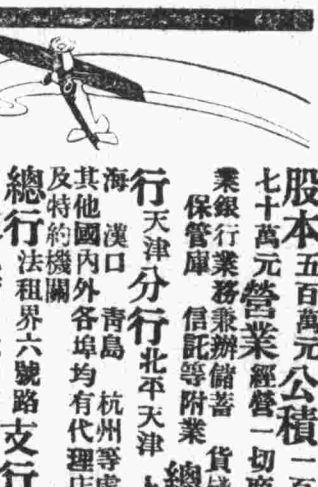 股本五百萬元公積一百
七十萬元營業經營一切商
業銀行業務兼辦儲蓄 貨棧
保管庫 信託等附業 總
行天津分行北平天津 上
海 漢口 青島 杭州等處
其他國內外各埠均有代理店
及特約機關
總行法租界六號路支行